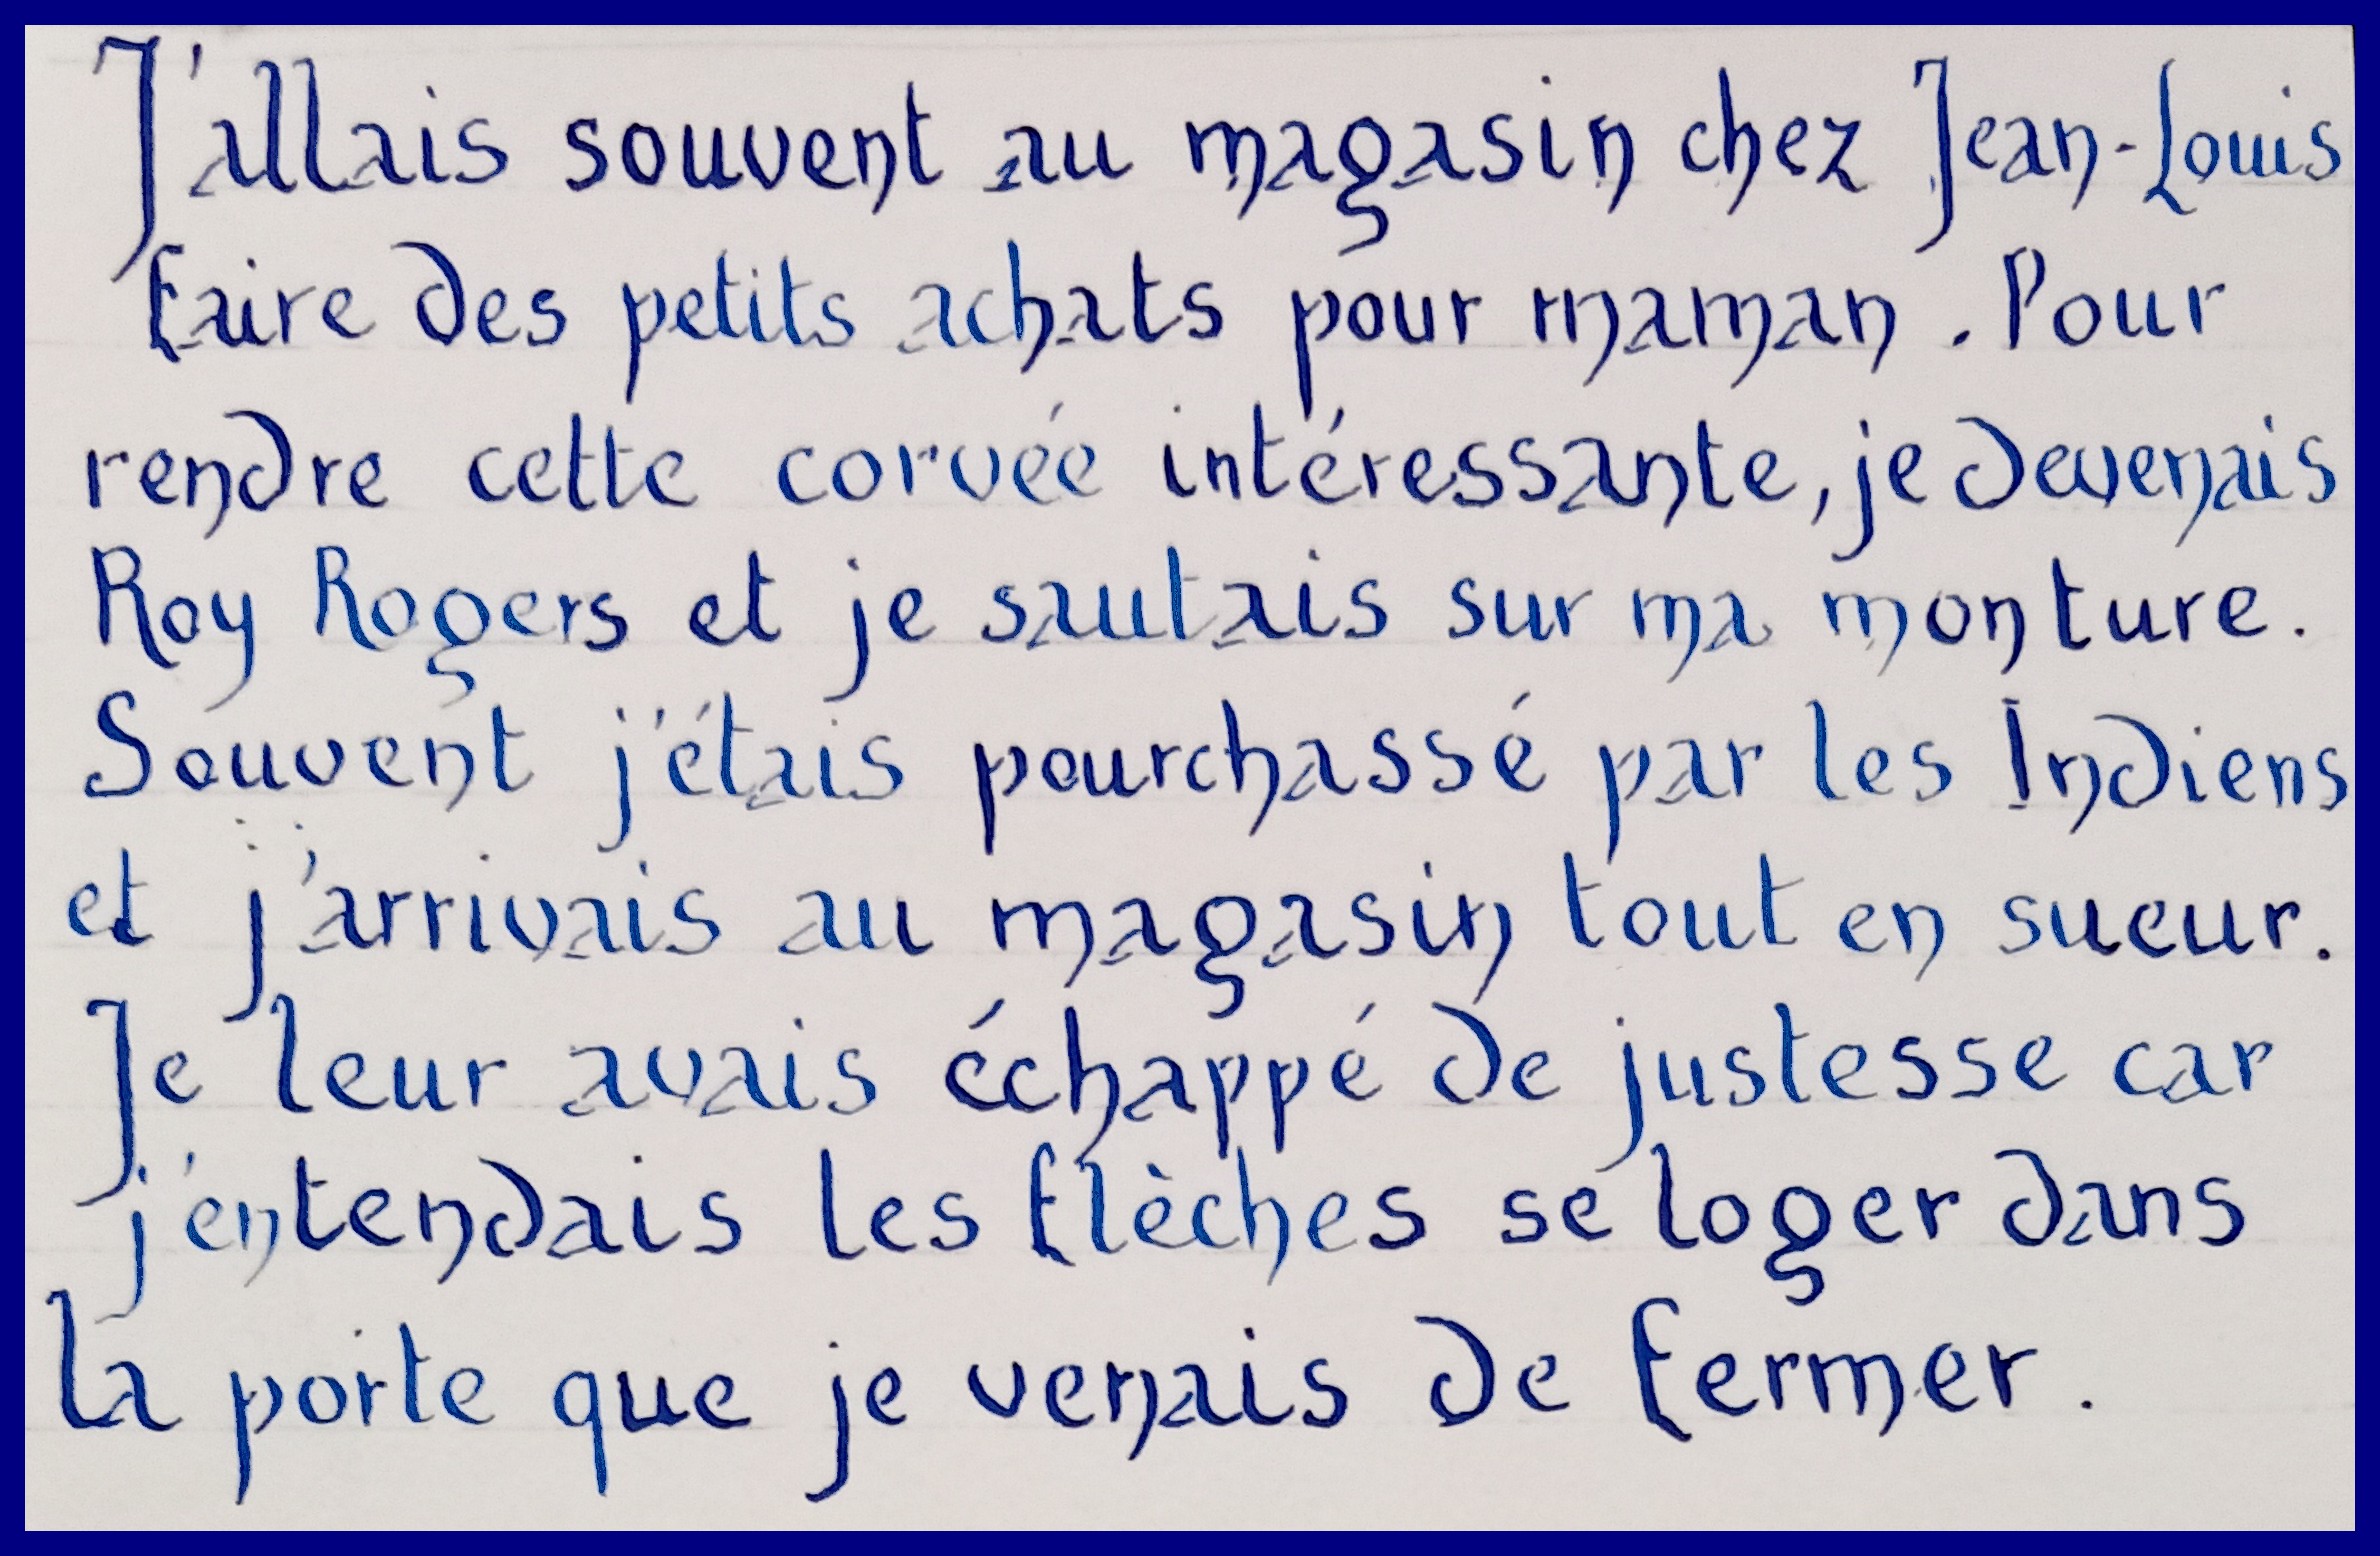 J'allais souvent au magasin chez Jean-Louis
faire des petits achats pour maman. Pour
rendre cette corvée intéressante, je devenais
Roy Rogers et je sautais sur ma monture.
Souvent j'étais pourchassé par les Indiens
et j'arrivais au magasin tout en sueur.
Je leur avais échappé de justesse car
j'entendais les flèches se loger dans
la porte que je venais de fermer.